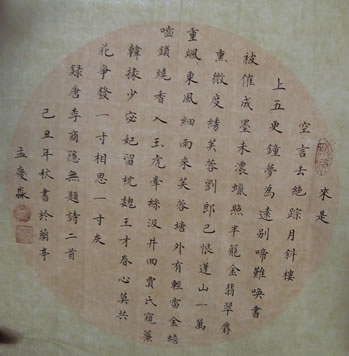 來是
空言去絶踪月斜樓
上五更鐘夢為遠別啼難喚書
被催成墨未濃蠟照半籠金翡翠麝
熏微度繡芙蓉劉郎已恨蓬山一萬
重颯東風細雨來芙蓉塘外有輕雷金蟾
嚙鎖燒香入玉虎牽絲汲井回賈氏窺簾
韓掾少宓妃留枕魏王才春心莫共
花爭發一寸相思一寸灰
録唐李商隱無題詩二首
己丑年秋書於蘭亭
孟慶淼